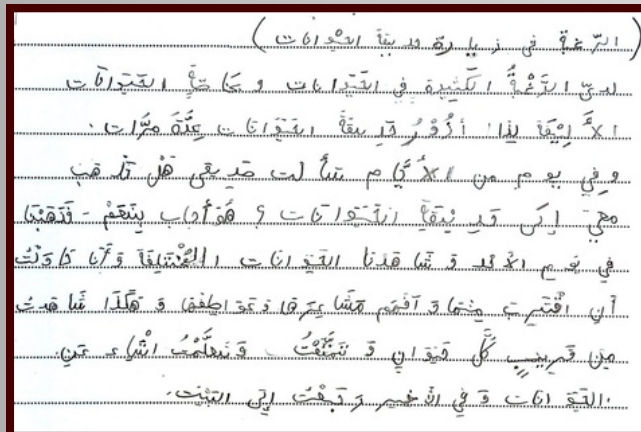 (الرّغبة في زيارة مدينة الحيوانات)
لديّ الرَّغْبةُ الكَثِيرة في الحَيَوانات وبخاصّةٍ الحَيَوانات
الأَلِيفَة لِذا أَزُوْرُ حَدِيقَةَ الحَيَوانات عِدَّةَ مَرَّات.
وفي يوم من الأَيَّام سَأَلت صَدِيقي هَلْ تَذهَب
مَعِيْ إِلى مَدِيْنَةِ الحَيَوانات؟ هُوَ أَجَاب بِنَعَمْ - فَذَهَبْنا
في يَوم الأَحد وَ شَاهدنا الحَيَوانات المُخْتَلِفَة وَأَنا حَاوَلْتُ
أن اقْتَرِبَ مِنها وَ أَفْهَم مَشَاعِرَها وَعَوَاطِفَها وَ هَكَذَا شَاهدتُ
مِن قَرِيبٍ كُلَّ حَيَوانٍ وَ تَمَتَّعْتُ وَ تَعَلَّمْتُ أَشْيَاء عَنِ
الحَيَوانات وَ في الأَخير رَجَعْتُ إِلى البَيْت.